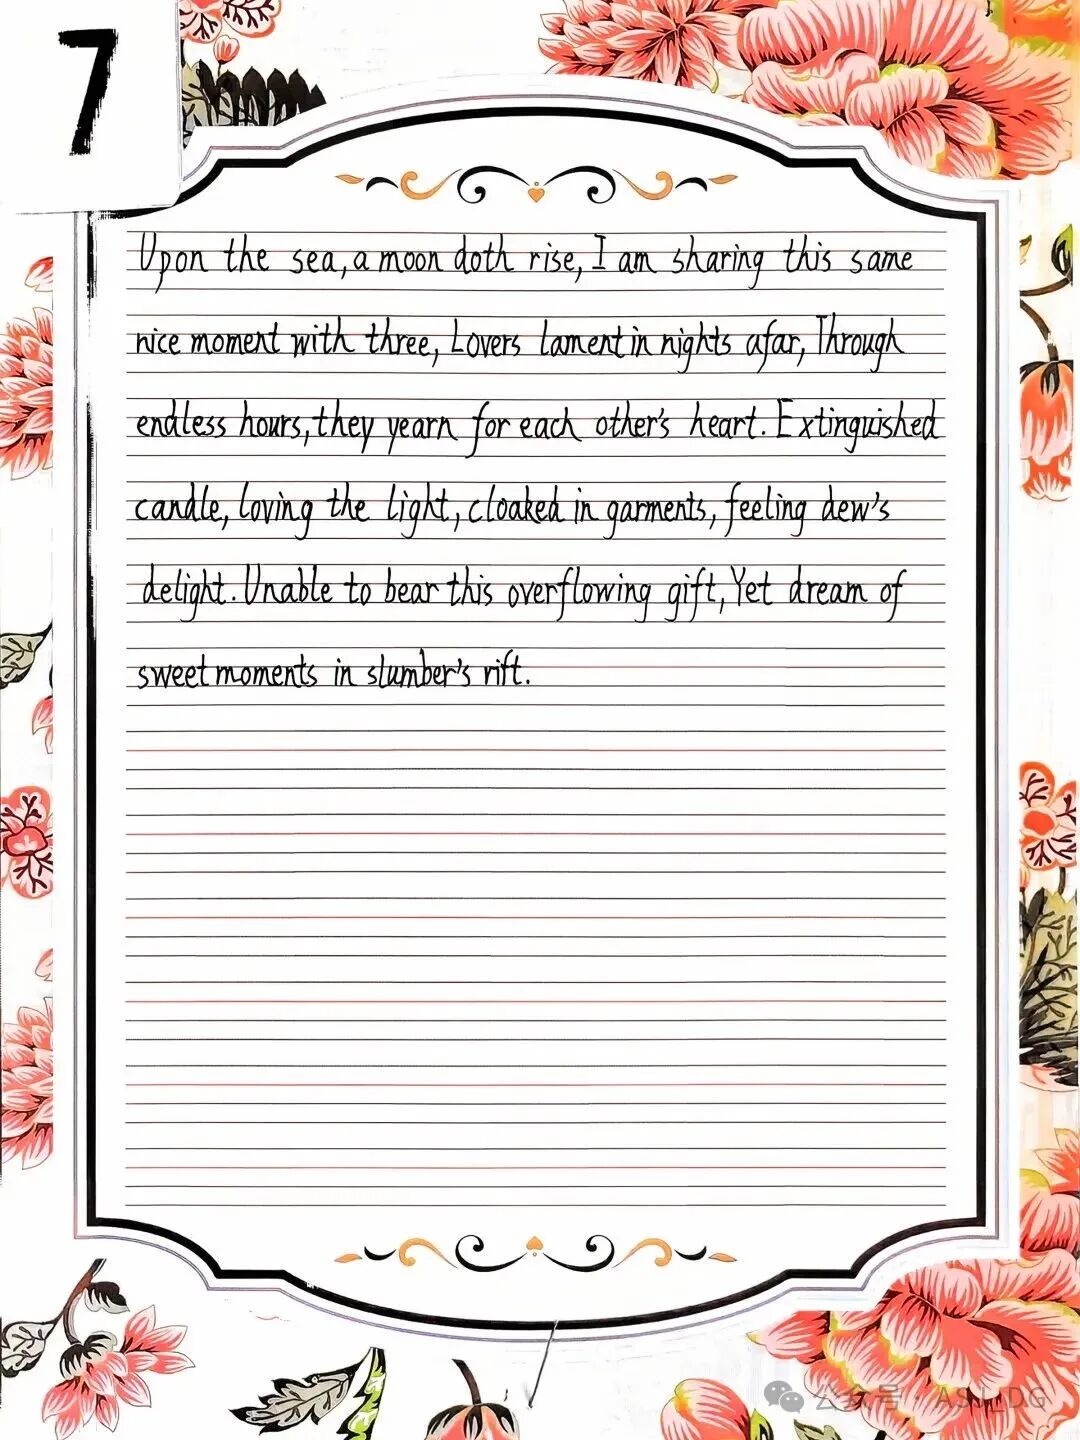 7
Upon the sea, a moon doth rise, I am sharing this same
nice moment with three, Lovers lament in nights afar, Through
endless hours, they yearn for each other's heart. Extinguished
candle, loving the light, cloaked in garments, feeling dew's
delight. Unable to bear this overflowing gift, Yet dream of
sweet moments in slumber's rift.
公众号 · ASJ_DG